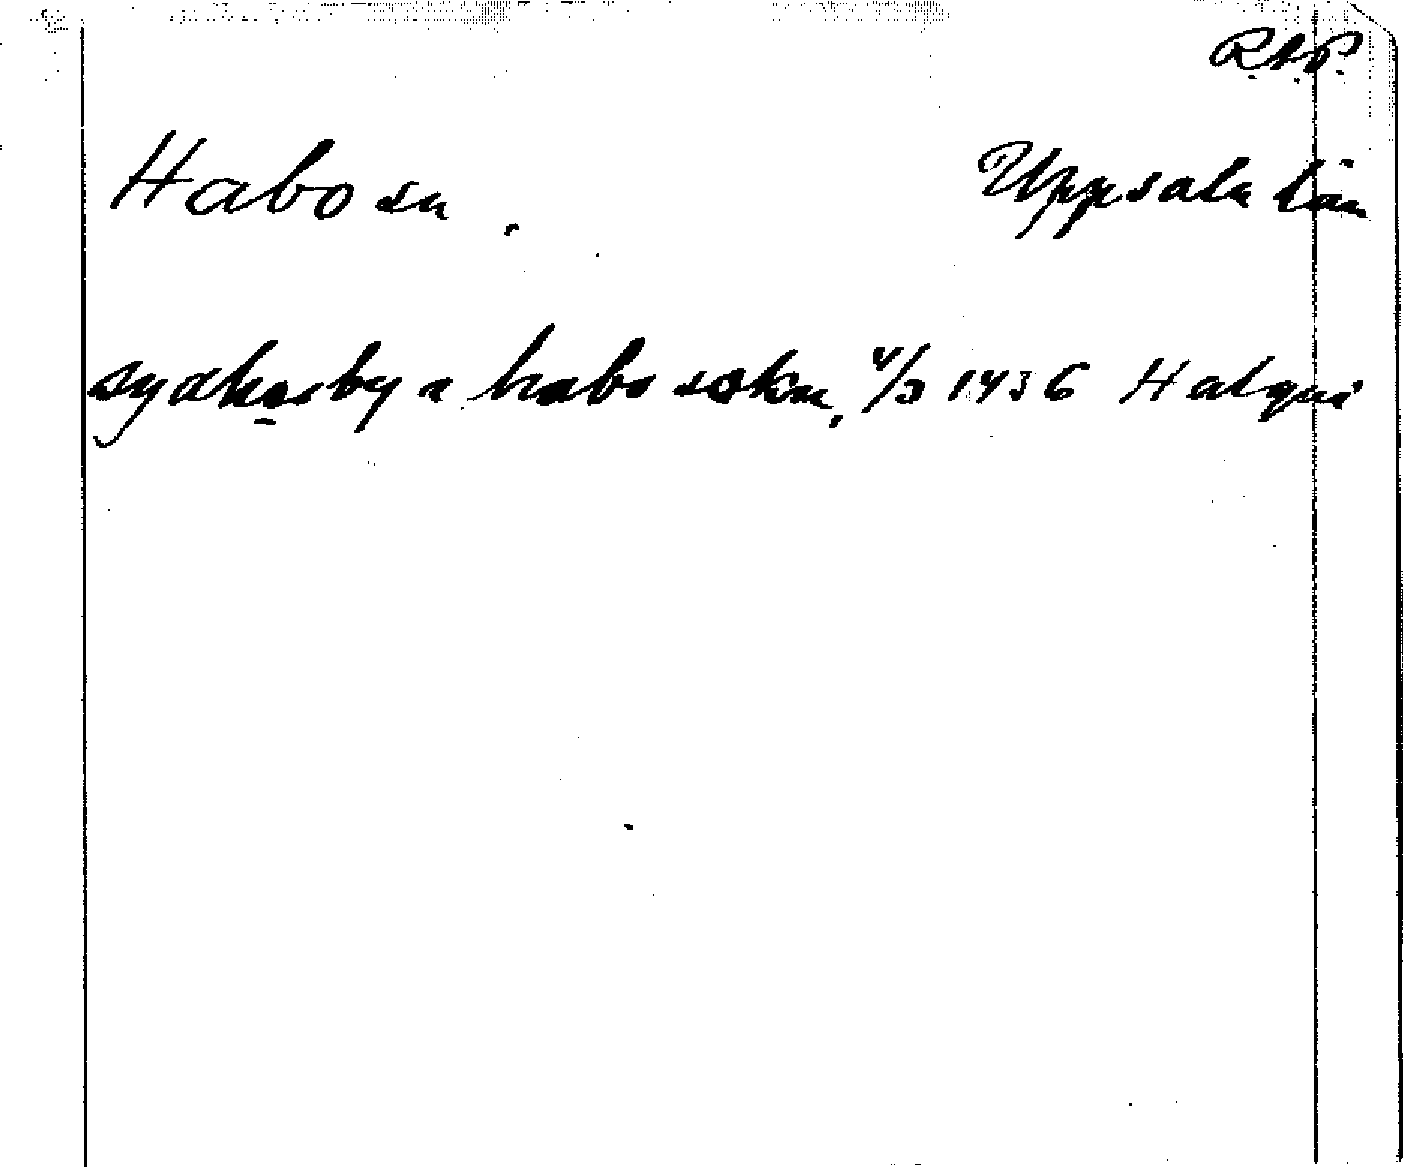 R.A.P.
Habo sn. Uppsala län
habo sokn, 4/3 1436 Halqui